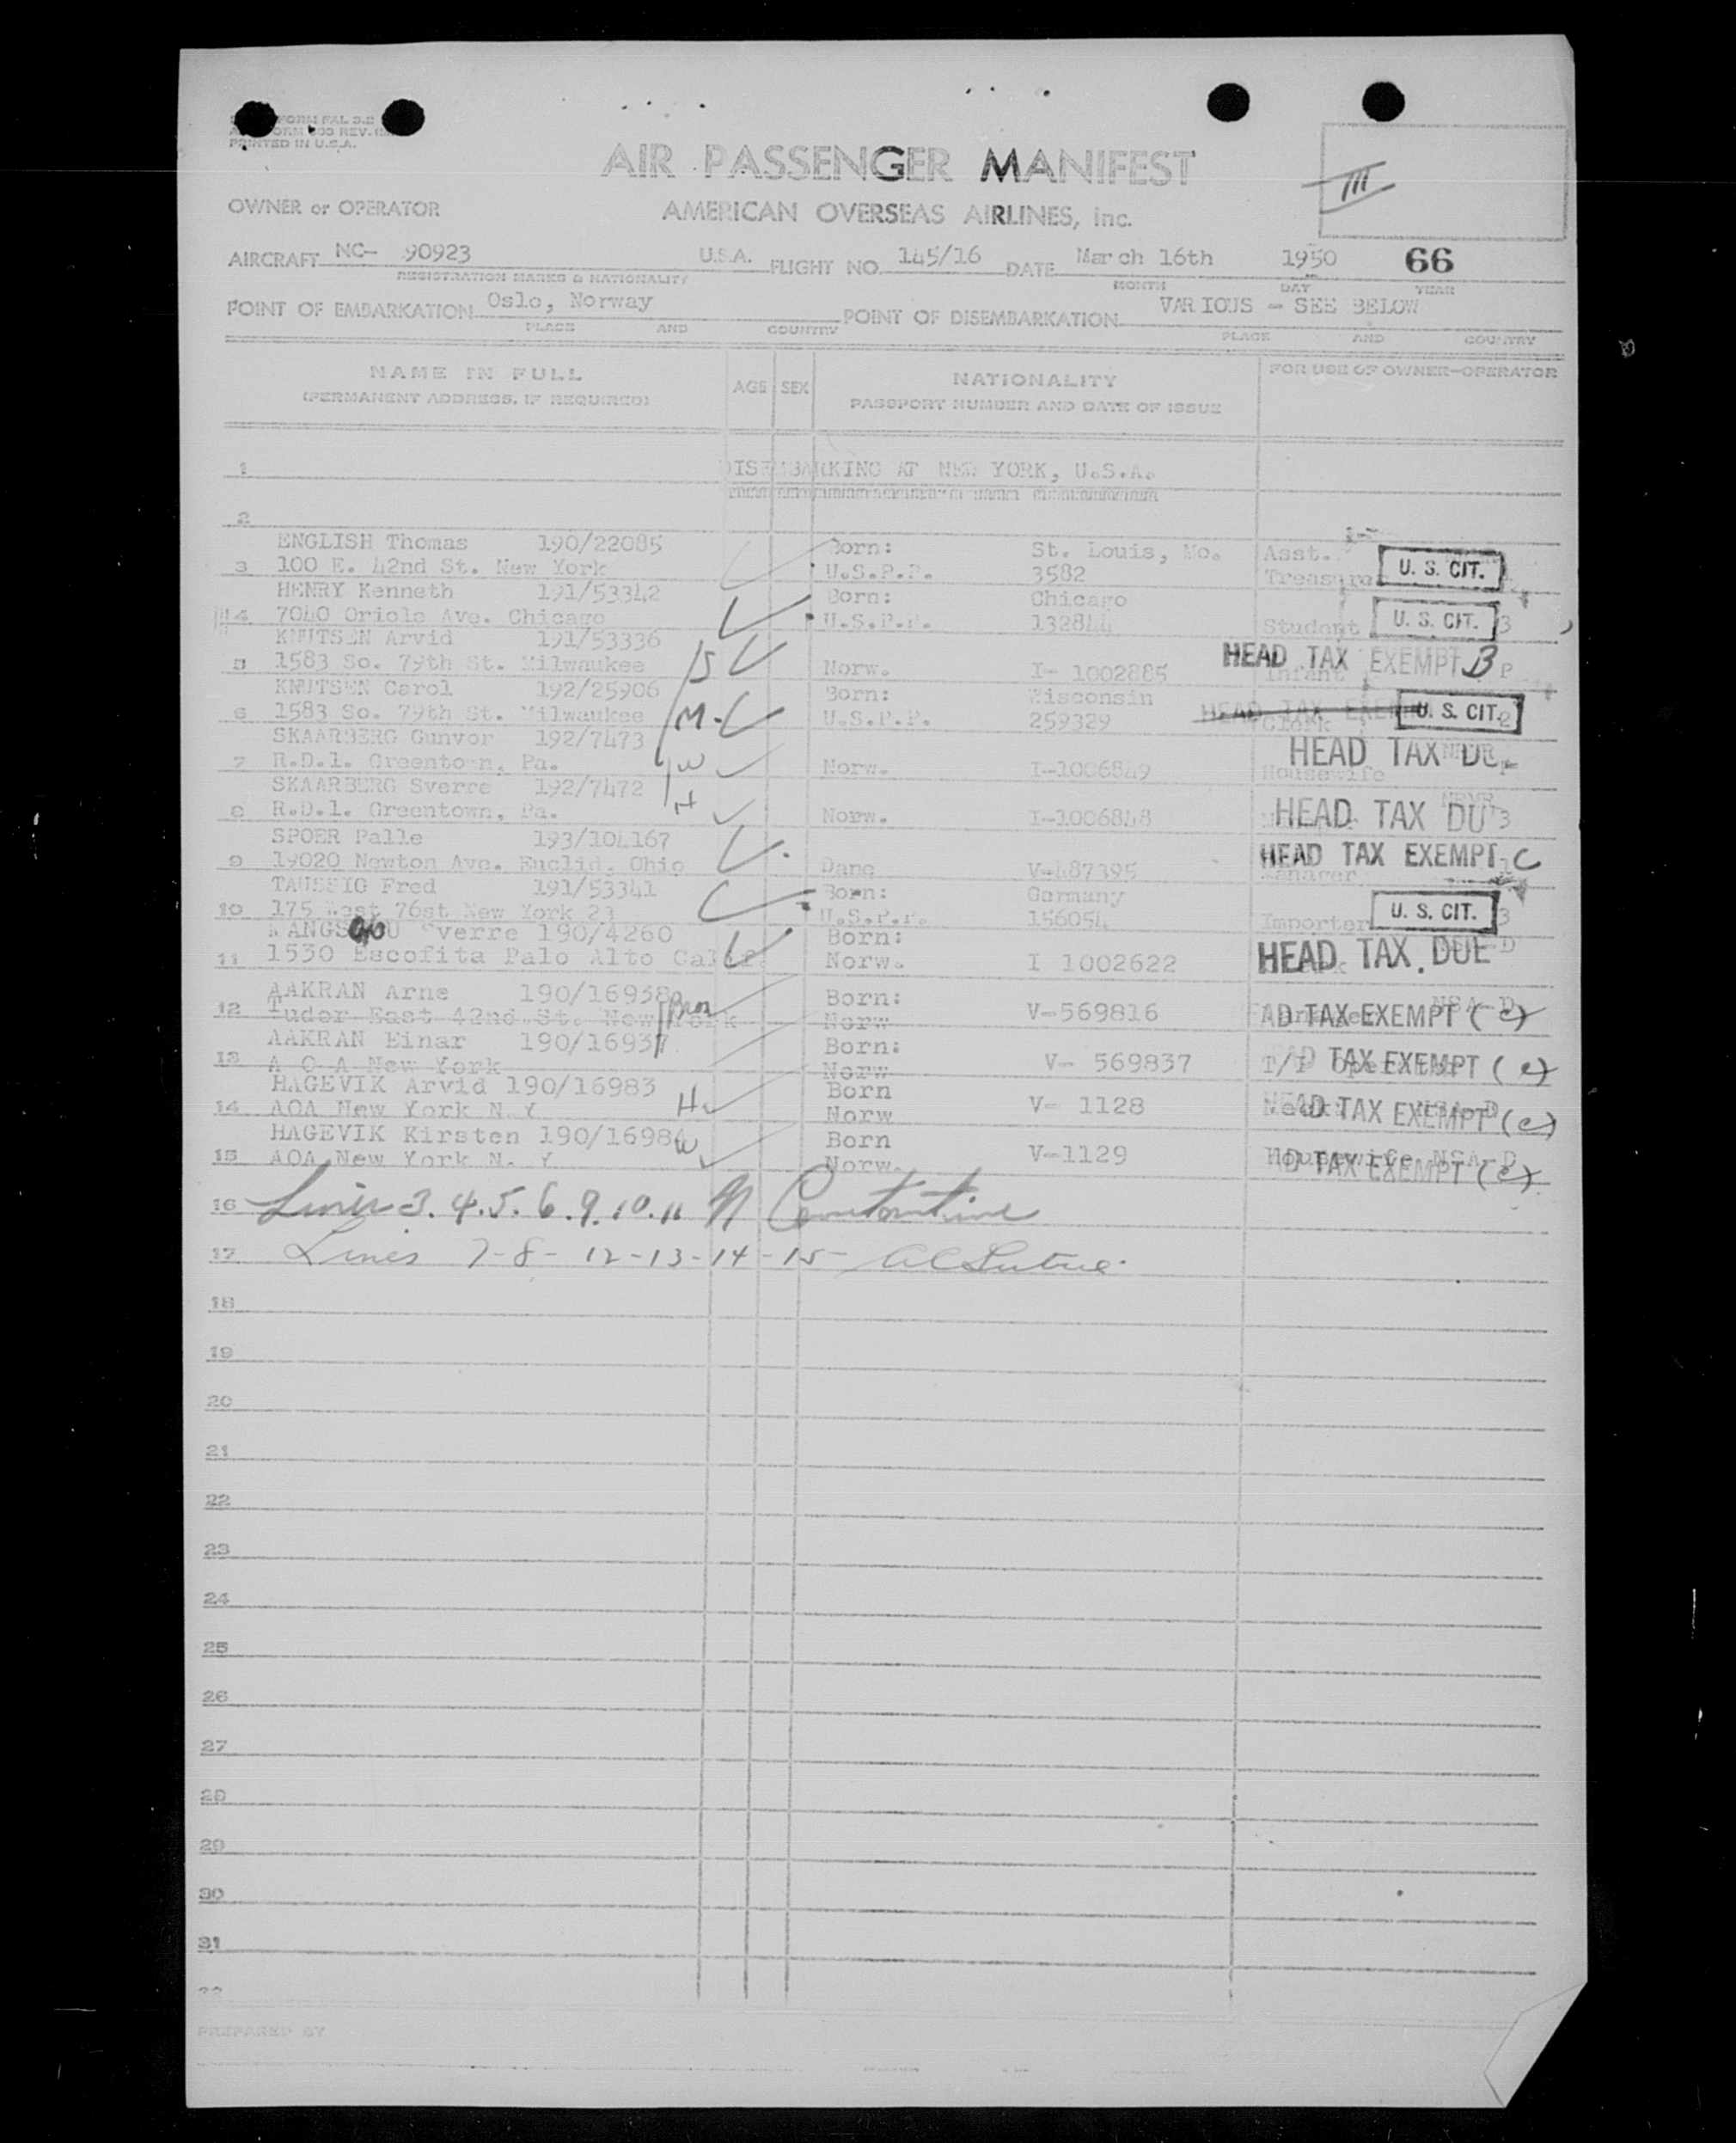 FORM FAL 3.2
FORM 503 REV.
PRINTED IN U.S.A.
AIR PASSENGER MANIFEST
III
OWNER or OPERATOR AMERICAN OVERSEAS AIRLINES, inc.
AIRCRAFT NC- 90923 U.S.A. FLIGHT NO. 145/16 DATE March 16th 1950 66
REGISTRATION MARKS & NATIONALITY MONTH DAY YEAR
POINT OF EMBARKATION Oslo, Norway POINT OF DISEMBARKATION VARIOUS - SEE BELOW
PLACE AND COUNTRY PLACE AND COUNTRY
NAME IN FULL AGE SEX NATIONALITY FOR USE OF OWNER-OPERATOR
(PERMANENT ADDRESS, IF REQUIRED) PASSPORT NUMBER AND DATE OF ISSUE
1 DISEMBARKING AT NEW YORK, U.S.A.
2
ENGLISH Thomas 190/22085 Born: St. Louis, Mo. Asst.
3 100 E. 42nd St. New York U.S.P.P. 3582 Treasurer U. S. CIT.
HENRY Kenneth 191/53342 Born: Chicago
4 7040 Oriole Ave. Chicago U.S.P.P. 132844 Student U. S. CIT. 3
KNUTSEN Arvid 191/53336 HEAD TAX EXEMPT B
5 1583 So. 79th St. Milwaukee S Norw. I- 1002885 Infant P
KNUTSEN Carol 192/25906 Born: Wisconsin
6 1583 So. 79th St. Milwaukee M U.S.P.P. 259329 Clerk HEAD TAX U. S. CIT. 2
SKAARBERG Gunvor 192/7473 HEAD TAX DU
7 R.D.1. Greentown, Pa. W Norw. I-1006849 Housewife
SKAARBERG Sverre 192/7472 H
8 R.D.1. Greentown, Pa. Norw. I-1006848 HEAD TAX DU 3
SPOER Palle 193/104167
9 19020 Newton Ave. Euclid, Ohio Dane V-487395 Manager HEAD TAX EXEMPT C
TAUSSIG Fred 191/53341 Born: Germany
10 175 West 76st New York 23 U.S.P.P. 156054 Importer U. S. CIT. 3
Sverre 190/4260 Born:
11 1530 Escofita Palo Alto Calif. Norw. I 1002622 HEAD TAX DUE D
AAKRAN Arne 190/16938 Bros Born:
12 Tudor East 42nd.St. New York Norw V-569816 AD TAX EXEMPT (c) NSA-D
AAKRAN Einar 190/16937 Born:
13 A O A New York Norw V- 569837 TAX EXEMPT (c)
HAGEVIK Arvid 190/16983 H Born
14 AOA New York N.Y Norw V- 1128 AD TAX EXEMPT (c) NSA-D
HAGEVIK Kirsten 190/16984 W Born
15 AOA New York N. Y Norw. V-1129 Housewife NSA-D D TAX EXEMPT (c)
16 Lines 3. 4. 5. 6. 9. 10. 11
17 Lines 7-8- 12-13-14-15-
18
19
20
21
22
23
24
25
26
27
28
29
30
31
PREPARED BY